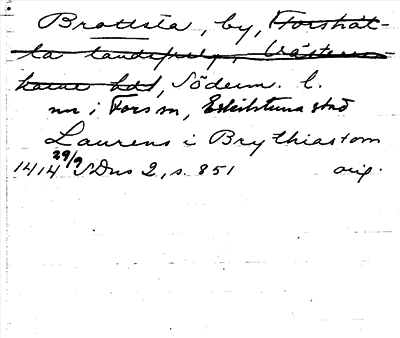 Brottsta, by, Torshäl-
la landsförs., Väster-
harne hd, Söderm. l.
nu i Fors sn, Eskilstuna stad
Laurens i Brythiastom
1414 29/9 SDns 2, s. 851 orig.